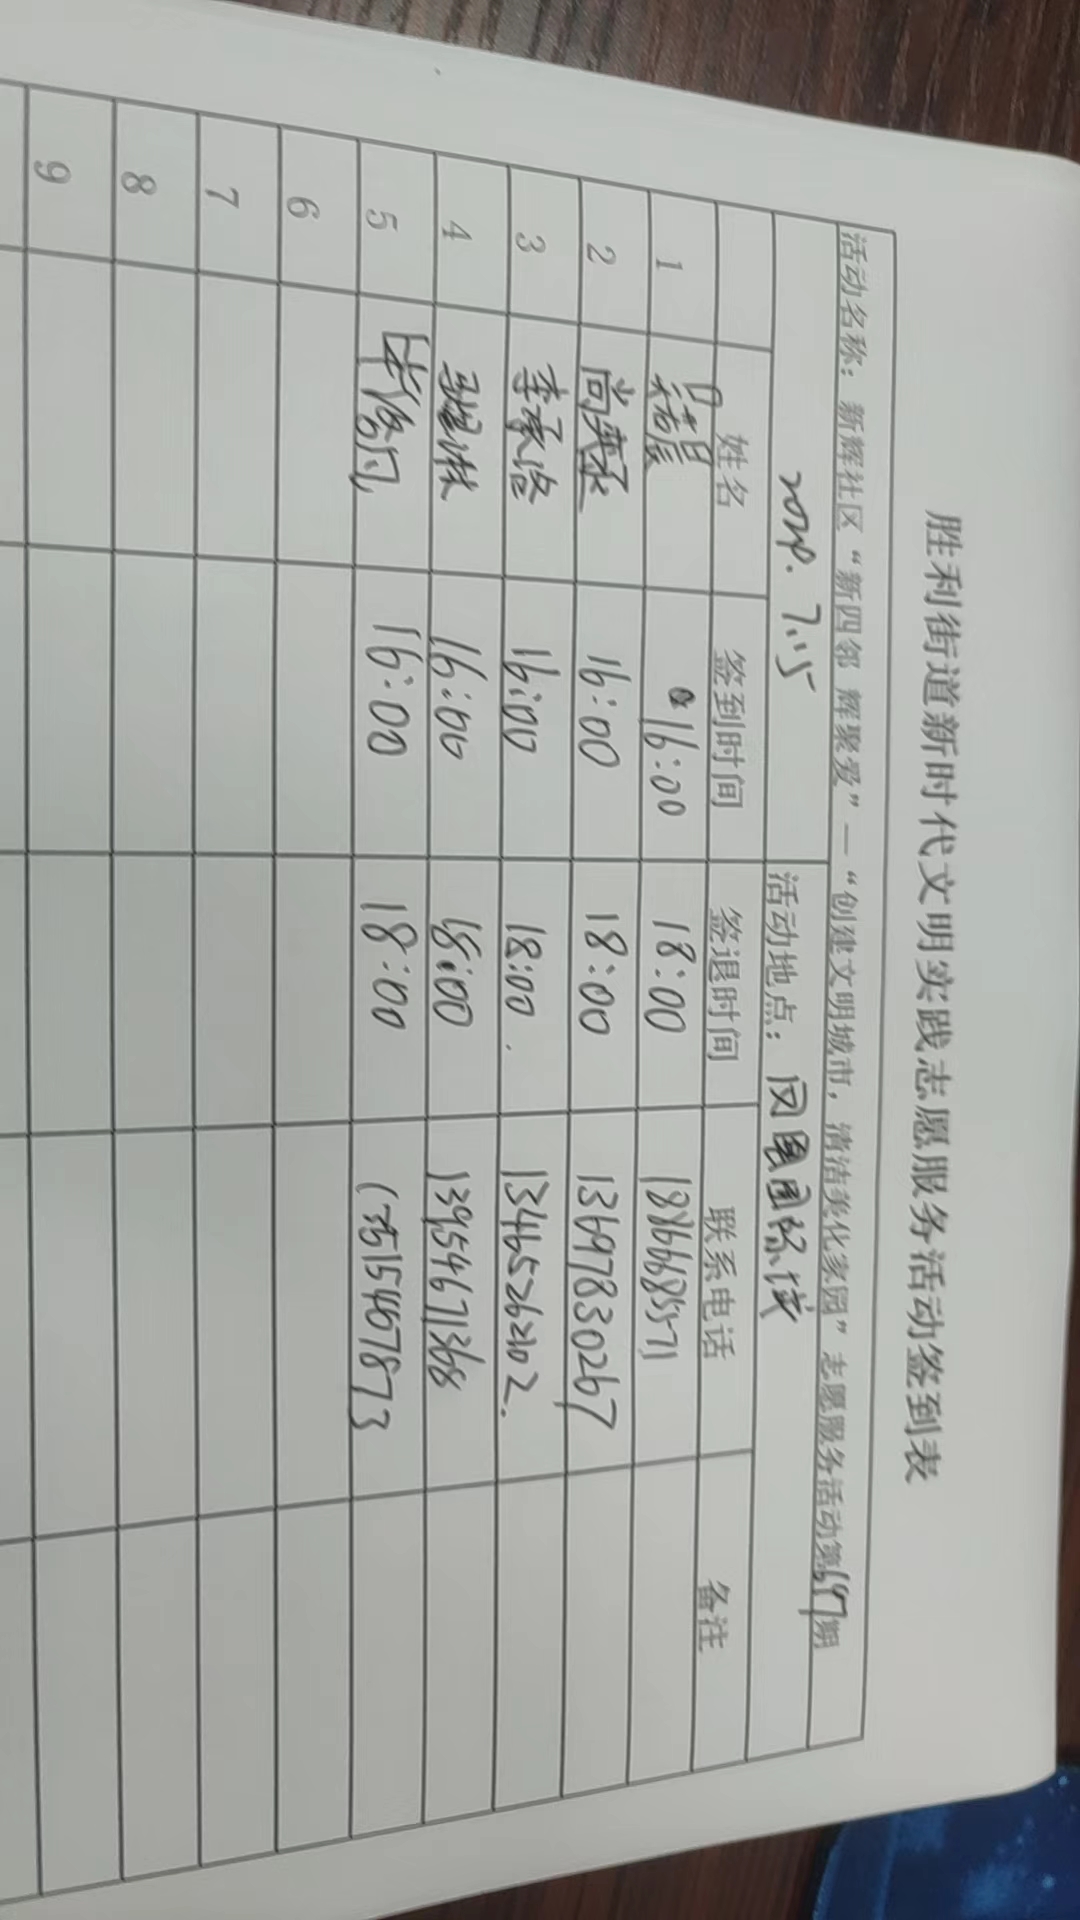 胜利街道新时代文明实践志愿服务活动签到表
活动名称：新辉社区“新四邻 辉聚爱”—“创建文明城市，清洁美化家园”志愿服务活动第647期
7.15 活动地点：
姓名 签到时间 签退时间 联系电话 备注
1 16:00 18:00 18866685571
2 16:00 18:00 13697830267
3 李承洛 16:00 18:00. 13465262102.
4 16:00 18:00 13954671368
5 16:00 18:00
6
7
8
9